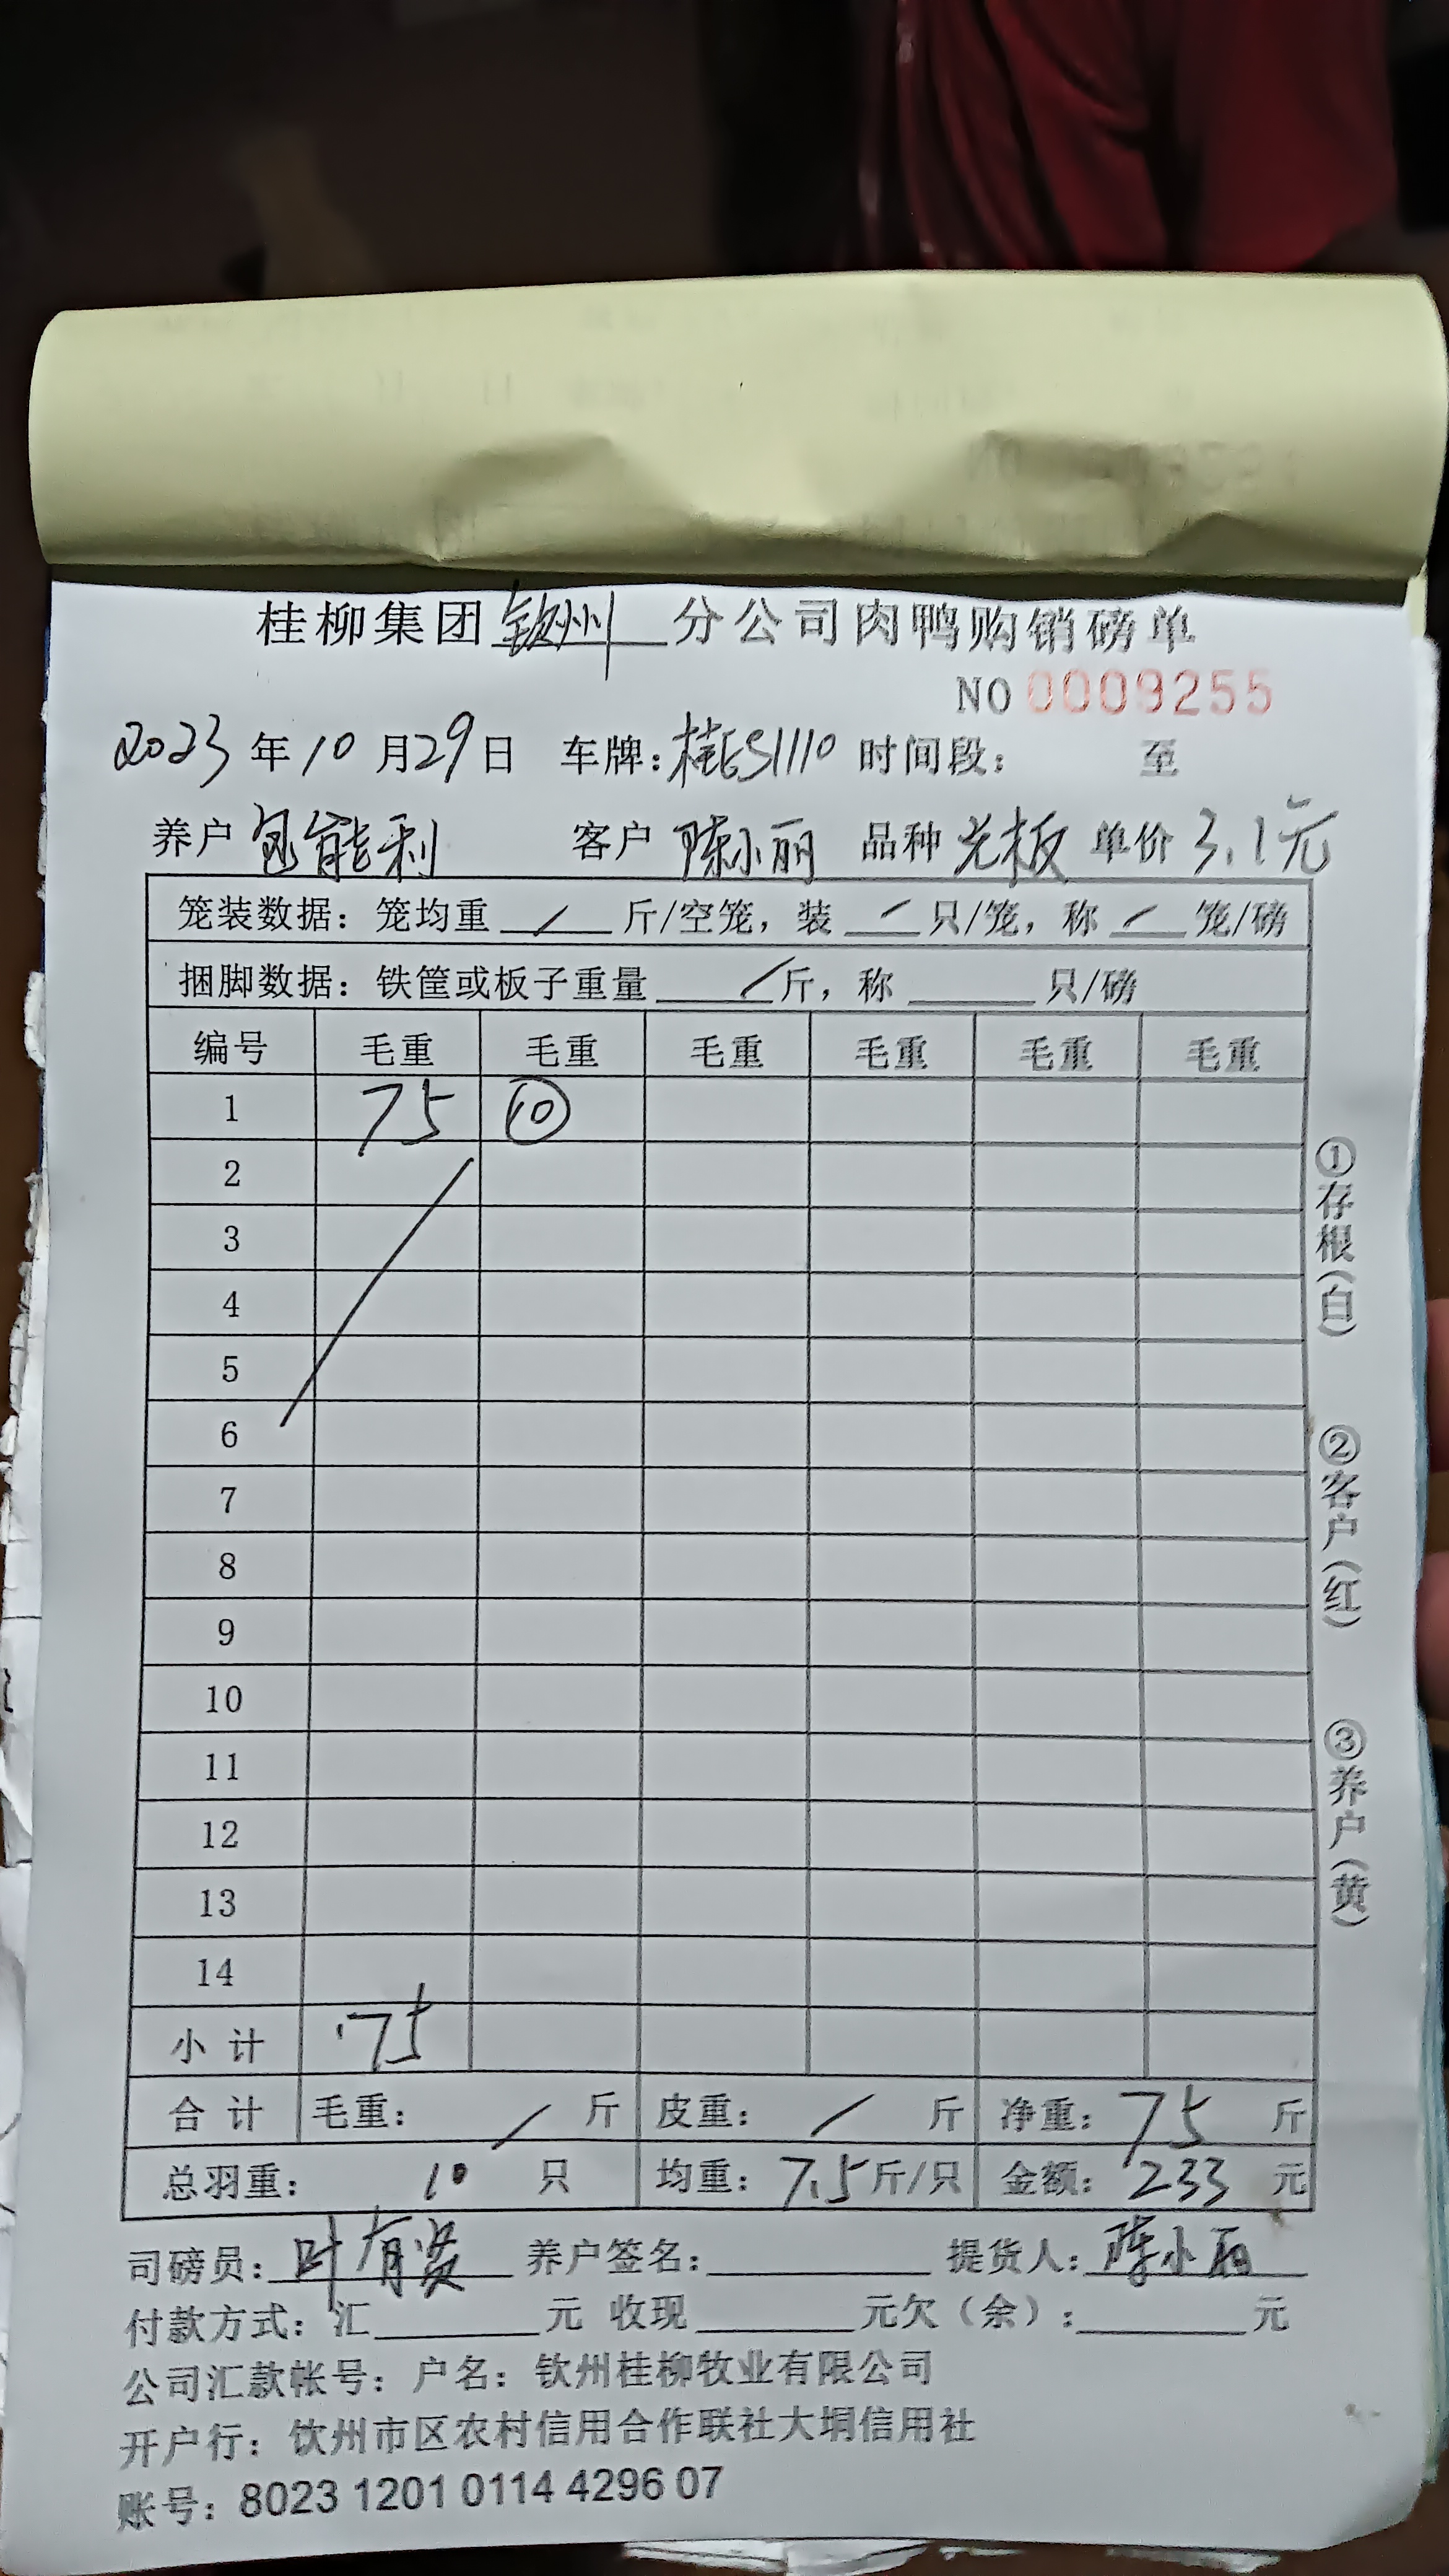 桂柳集团钦州分公司肉鸭购销磅单
NO 0009255
2023年10月29日 车牌:桂ES1110 时间段: 至
养户 包能利 客户 陈小丽 品种 光板 单价 3.1元
笼装数据: 笼均重 / 斤/空笼, 装 / 只/笼, 称 / 笼/磅
捆脚数据: 铁筐或板子重量 / 斤, 称 只/磅
编号 毛重 毛重 毛重 毛重 毛重 毛重
1 75 ⑩
2
3
4
5
6
7
8
9
10
11
12
13
14
小计 75
合计 毛重: / 斤 皮重: / 斤 净重: 75 斤
总羽重: 10 只 均重: 7.5斤/只 金额: 233 元
司磅员: 叶有贤 养户签名: 提货人: 陈小丽
付款方式: 汇 元 收现 元欠(余): 元
公司汇款帐号: 户名: 钦州桂柳牧业有限公司
开户行: 钦州市区农村信用合作联社大垌信用社
账号: 8023 1201 0114 4296 07
①存根(白)
②客户(红)
③养户(黄)